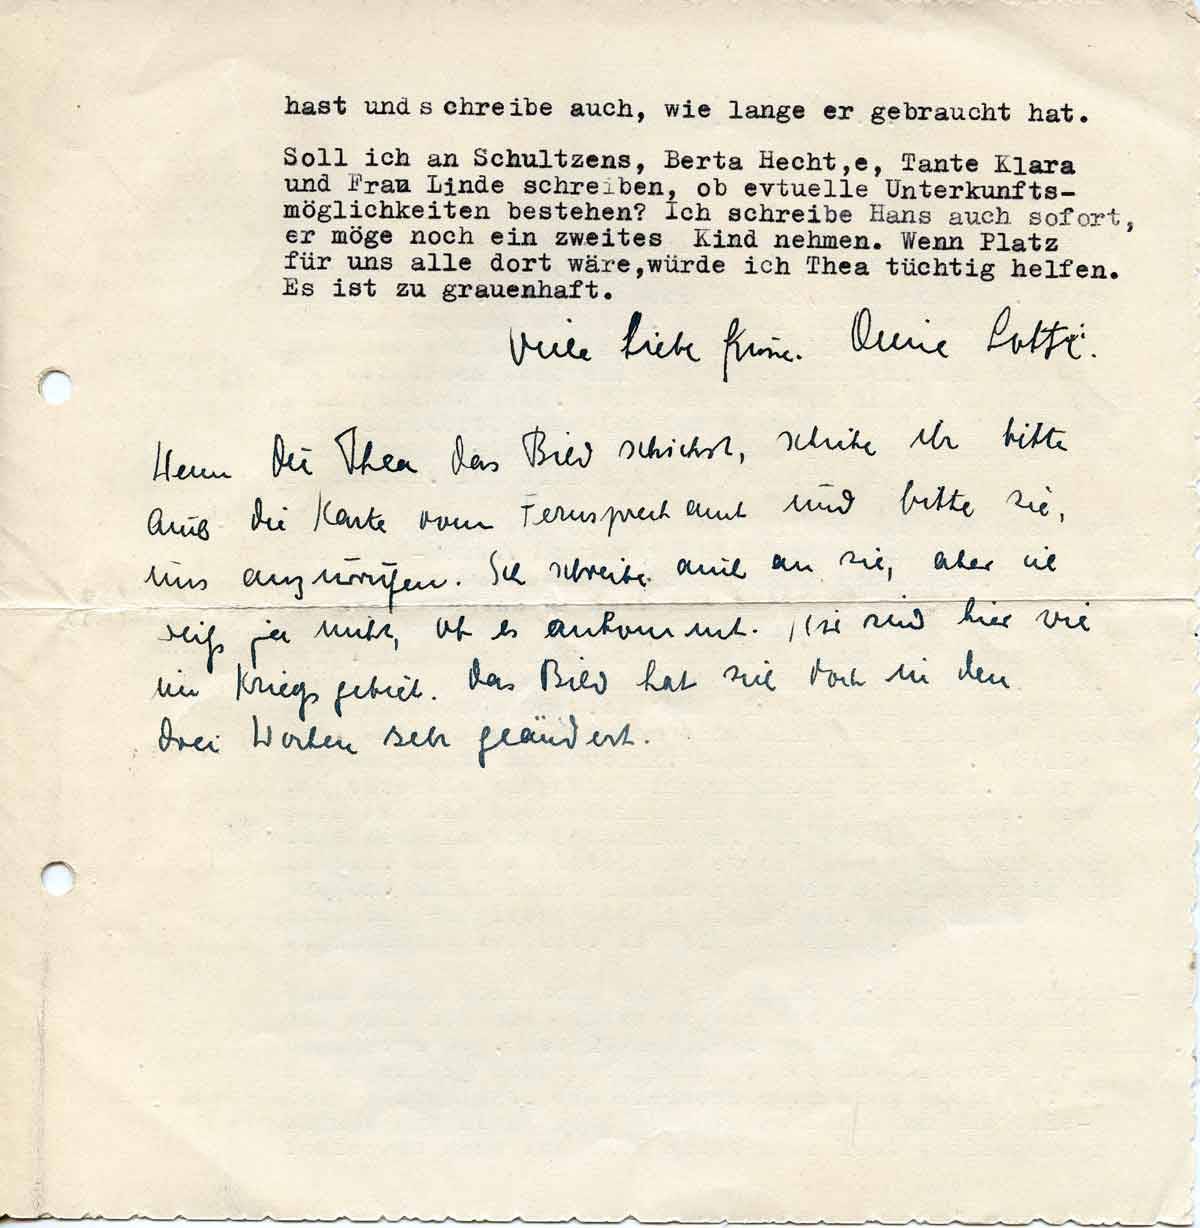 hast und s chreibe auch, wie lange er gebraucht hat.
Soll ich an Schultzens, Berta Hecht,e, Tante Klara
und Frau Linde schreiben, ob evtuelle Unterkunfts-
möglichkeiten bestehen? Ich schreibe Hans auch sofort,
er möge noch ein zweites Kind nehmen. Wenn Platz
für uns alle dort wäre,würde ich Thea tüchtig helfen.
Es ist zu grauenhaft.
Viele liebe Grüße. Deine Lotte.
Wenn Du Thea das Bild schickst, schreibe ihr bitte
auch die Karte vom Fernsprechamt und bitte sie,
uns anzurufen. Ich schreibe auch an sie, aber ich
weiß ja nicht, ob es ankommt. Wir sind hier wie
im Kriegsgebiet. Das Bild hat sich doch in den
drei Wochen sehr geändert.